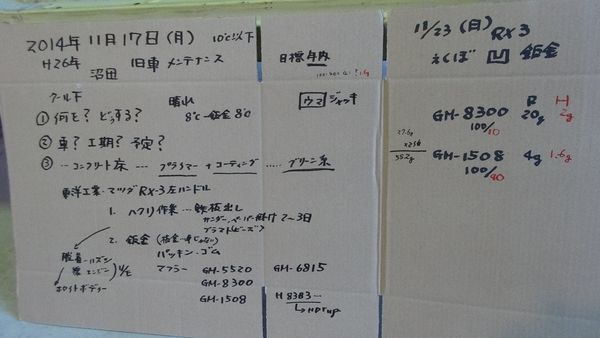 2014年 11月17日(月) 10℃以下
H26年 旧車 メンテナンス
沼田
目標 年内
クール下 晴れ
① 何を? どうする? 8℃〜鈑金 8℃
ウマ ジャッキ
② 車? 工期? 予定?
③ ‥コンクリート床 … プラズマー + コーティング ….. グリーン系
東洋工業・マツダ RX-3 左ハンドル
1. ハクリ作業 … 鉄板出し
サンダー、ペーパー掛け 2〜3日
2. 鈑金
パッキン・ゴム
マフラー GM-5520 GM-6815
GM-8300
GM-1508 H 8383-
ホワイトボディー
11/23 (日) RX3
えくぼ 凹 鈑金
R H
GM-8300 20g 2g
100/10
GM-1508 4g 1.6g
100/40
27.6g
55.2g